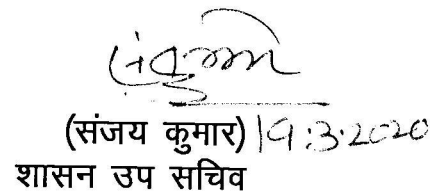 (संजय कुमार) 19.3.2020
शासन उप सचिव